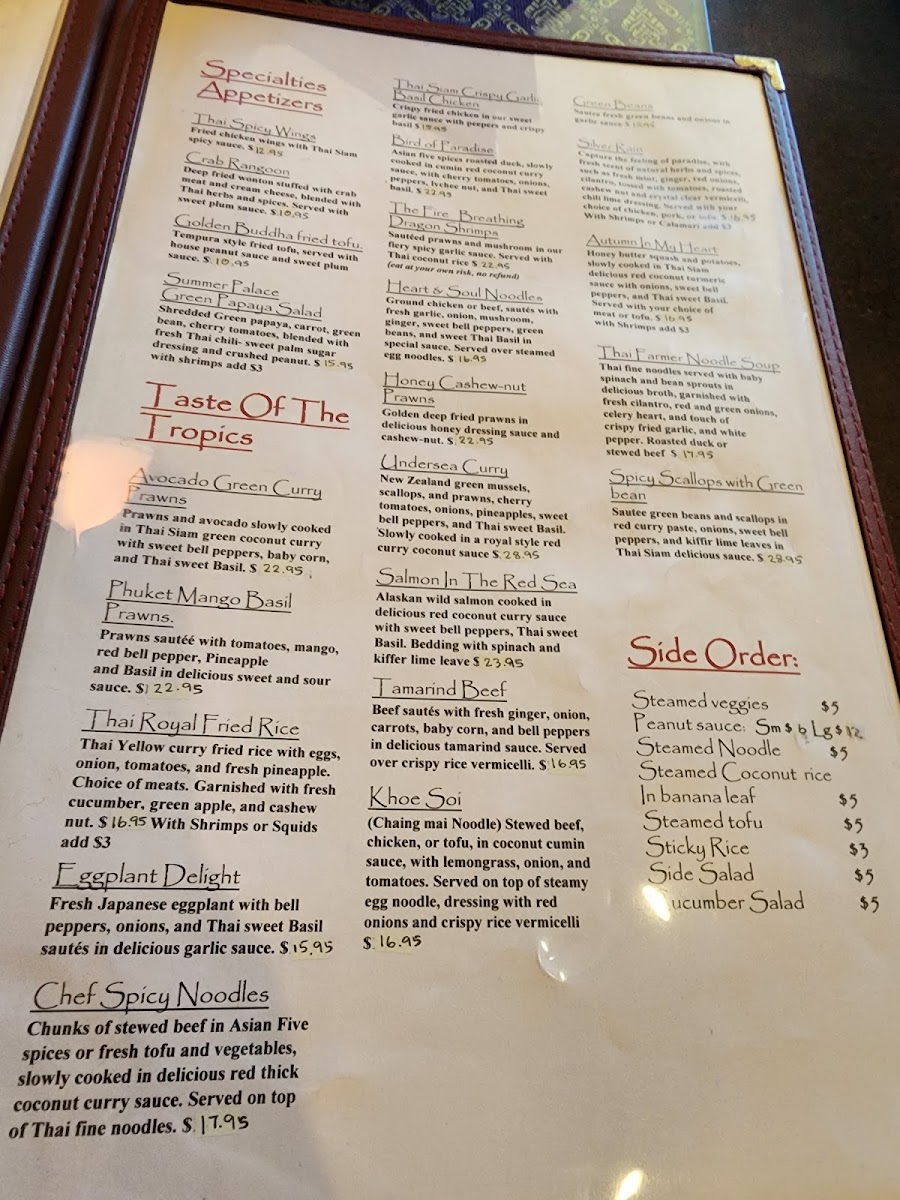 Specialties
Appetizers
Thai Spicy Wings
Fried chicken wings with Thai Siam
spicy sauce. $ 12.95
Crab Rangoon
Deep fried wonton stuffed with crab
meat and cream cheese, blended with
Thai herbs and spices. Served with
sweet plum sauce. $ 10.95
Golden Buddha fried tofu.
Tempura style fried tofu, served with
house peanut sauce and sweet plum
sauce. $ 10.95
Summer Palace
Green Papaya Salad
Shredded Green papaya, carrot, green
bean, cherry tomatoes, blended with
fresh Thai chili- sweet palm sugar
dressing and crushed peanut. $ 15.95
with shrimps add $3
Taste Of The
Tropics
Avocado Green Curry
Prawns
Prawns and avocado slowly cooked
in Thai Siam green coconut curry
with sweet bell peppers, baby corn,
and Thai sweet Basil. $ 22.95
Phuket Mango Basil
Prawns.
Prawns sautéé with tomatoes, mango,
red bell pepper, Pineapple
and Basil in delicious sweet and sour
sauce. $ 22.95
Thai Royal Fried Rice
Thai Yellow curry fried rice with eggs,
onion, tomatoes, and fresh pineapple.
Choice of meats. Garnished with fresh
cucumber, green apple, and cashew
nut. $ 16.95 With Shrimps or Squids
add $3
Eggplant Delight
Fresh Japanese eggplant with bell
peppers, onions, and Thai sweet Basil
sautés in delicious garlic sauce. $ 15.95
Chef Spicy Noodles
Chunks of stewed beef in Asian Five
spices or fresh tofu and vegetables,
slowly cooked in delicious red thick
coconut curry sauce. Served on top
of Thai fine noodles. $ 17.95
Thai Siam Crispy Garlic
Basil Chicken
Crispy fried chicken in our sweet
garlic sauce with peepers and crispy
basil $ 15.95
Bird of Paradise
Asian five spices roasted duck, slowly
cooked in cumin red coconut curry
sauce, with cherry tomatoes, onions,
peppers, lychee nut, and Thai sweet
basil. $ 22.95
The Fire Breathing
Dragon Shrimps
Sautéed prawns and mushroom in our
fiery spicy garlic sauce. Served with
Thai coconut rice $ 22.95
(eat at your own risk, no refund)
Heart & Soul Noodles
Ground chicken or beef, sautés with
fresh garlic, onion, mushroom,
ginger, sweet bell peppers, green
beans, and sweet Thai Basil in
special sauce. Served over steamed
egg noodles. $ 16.95
Honey Cashew-nut
Prawns
Golden deep fried prawns in
delicious honey dressing sauce and
cashew-nut. $ 22.95
Undersea Curry
New Zealand green mussels,
scallops, and prawns, cherry
tomatoes, onions, pineapples, sweet
bell peppers, and Thai sweet Basil.
Slowly cooked in a royal style red
curry coconut sauce $ 28.95
Salmon In The Red Sea
Alaskan wild salmon cooked in
delicious red coconut curry sauce
with sweet bell peppers, Thai sweet
Basil. Bedding with spinach and
kiffer lime leave $ 23.95
Tamarind Beef
Beef sautés with fresh ginger, onion,
carrots, baby corn, and bell peppers
in delicious tamarind sauce. Served
over crispy rice vermicelli. $ 16.95
Khoe Soi
(Chaing mai Noodle) Stewed beef,
chicken, or tofu, in coconut cumin
sauce, with lemongrass, onion, and
tomatoes. Served on top of steamy
egg noodle, dressing with red
onions and crispy rice vermicelli
$ 16.95
Green Beans
Sautee fresh green beans and onions in
garlic sauce $ 15.95
Silver Rain
Capture the feeling of paradise, with
fresh scent of natural herbs and spices,
such as fresh mint, ginger, red onions,
cilantro, tossed with tomatoes, roasted
cashew nut and crystal clear vermicelli,
chili lime dressing. Served with your
choice of chicken, pork, or tofu. $ 16.95
With Shrimps or Calamari add $3
Autumn In My Heart
Honey butter squash and potatoes,
slowly cooked in Thai Siam
delicious red coconut turmeric
sauce with onions, sweet bell
peppers, and Thai sweet Basil.
Served with your choice of
meat or tofu. $ 16.95
with Shrimps add $3
Thai Farmer Noodle Soup
Thai fine noodles served with baby
spinach and bean sprouts in
delicious broth, garnished with
fresh cilantro, red and green onions,
celery heart, and touch of
crispy fried garlic, and white
pepper. Roasted duck or
stewed beef $ 17.95
Spicy Scallops with Green
bean
Sautee green beans and scallops in
red curry paste, onions, sweet bell
peppers, and kiffir lime leaves in
Thai Siam delicious sauce. $ 28.95
Side Order:
Steamed veggies $5
Peanut sauce: Sm $ 6 Lg $ 12
Steamed Noodle $5
Steamed Coconut rice
In banana leaf $5
Steamed tofu $5
Sticky Rice $3
Side Salad $5
Cucumber Salad $5